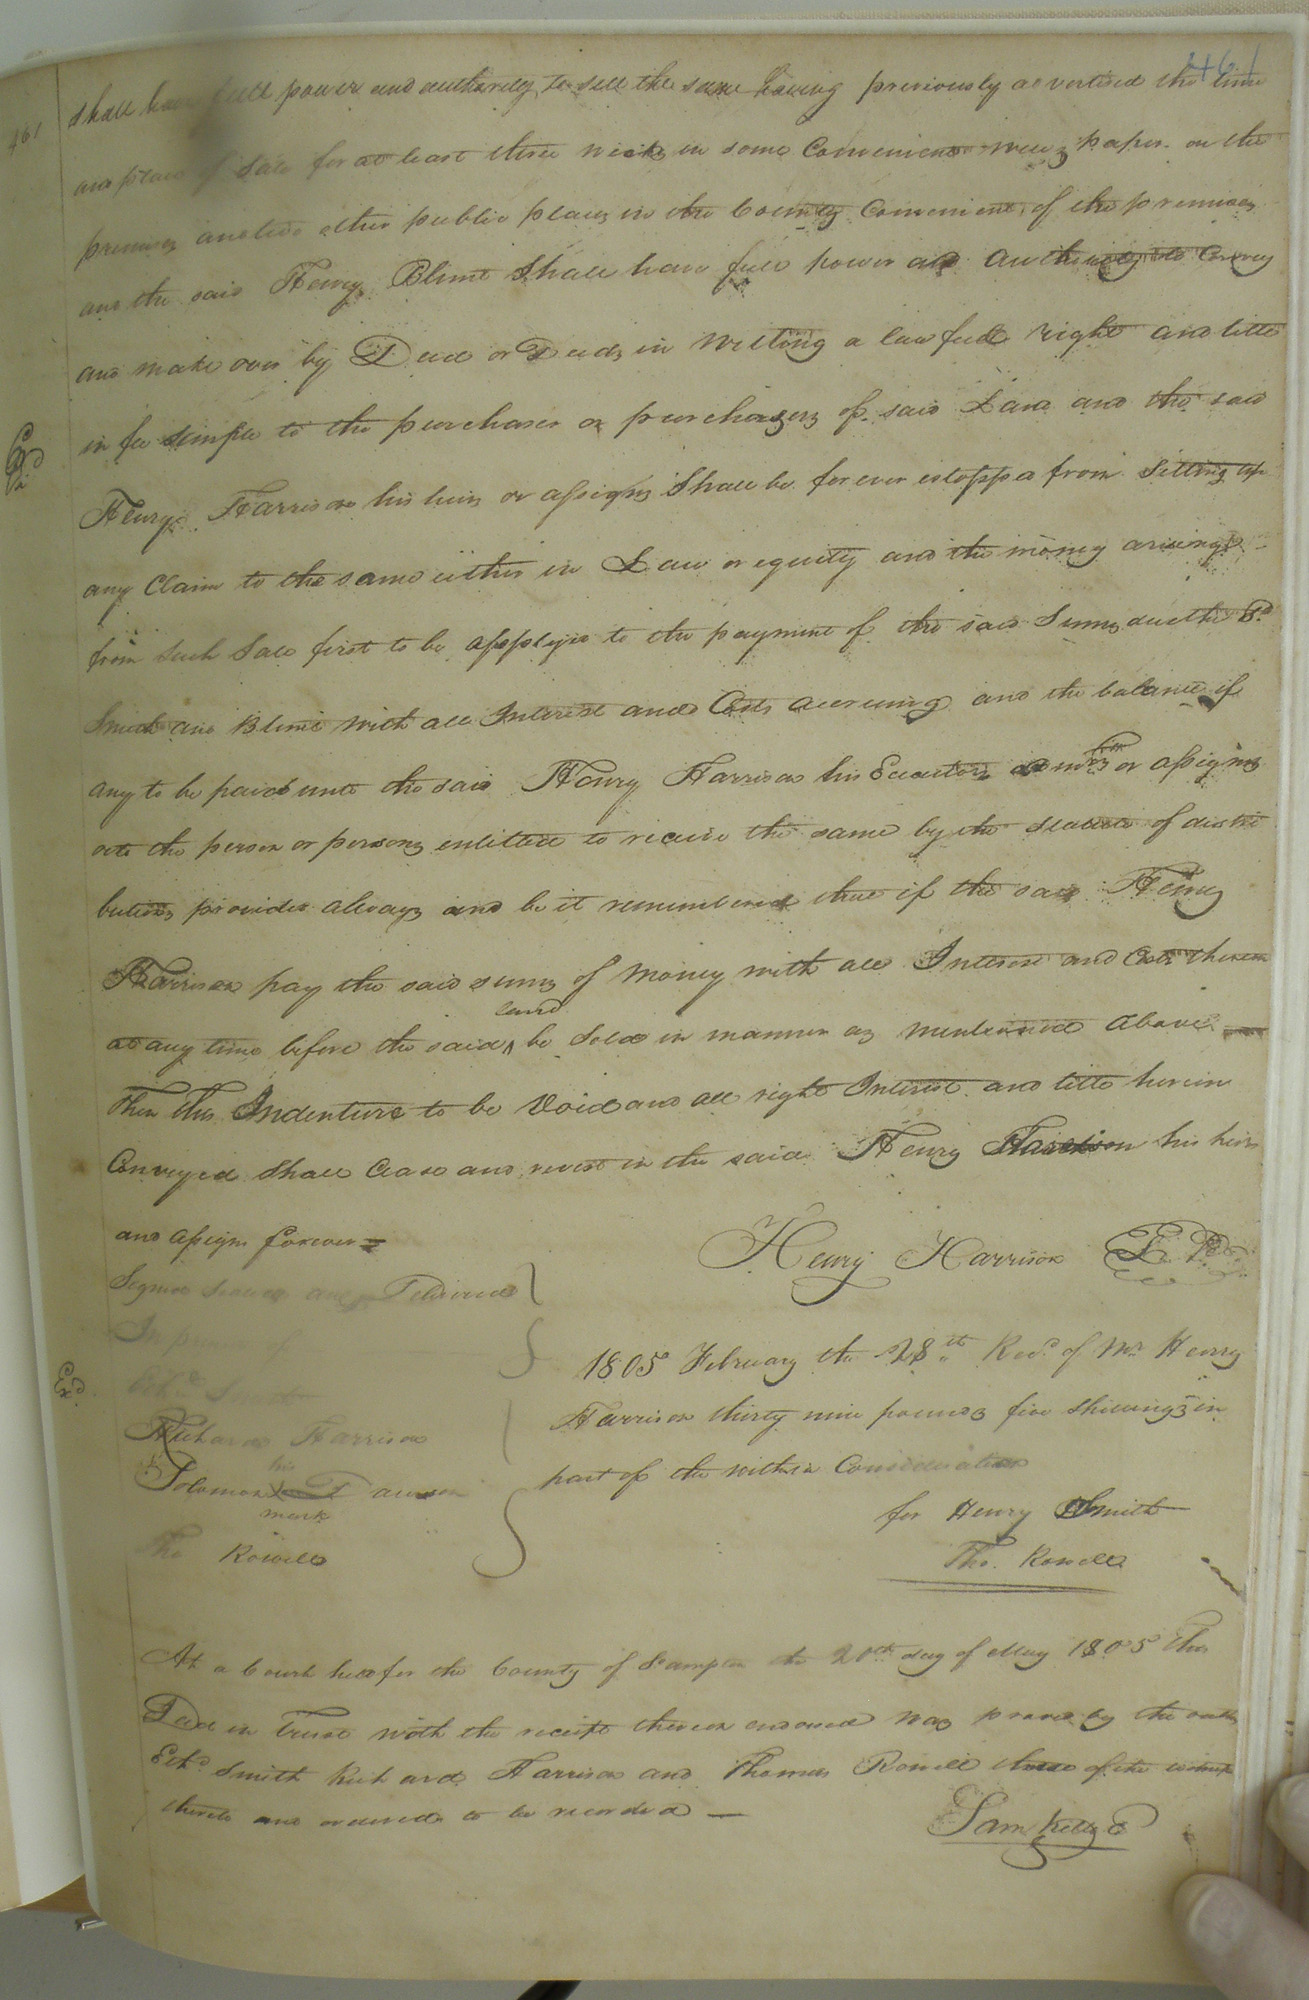 461
461
shall have full power and authority to sell the same having previously advertised the time
and place of Sale for at least three weeks in some Convenient news paper on the
premises and two other public places in the County Convenient of the premises
and the said Henry Blunt Shall have full power and authority to Convey
and make over by Deed or Deeds in Writing a lawfull right and title
in fee simple to the purchaser or purchasers of said Land and the said
Henry Harrison his heirs or assigns Shall be forever estopped from Setting up
any Claim to the same either in Law or equity and the money arising
from such Sale first to be applyed to the payment of the said Sums due the Sd
Smith and Blunt with all Interest and Costs accruing and the balance if
any to be paid unto the said Henry Harrison his Executors or assigns
or to the person or persons entitled to receive the same by the statute of distri
butions provided always and be it remembered that if the said Henry
Harrison pay the said sums of Money with all Interest and Costs thereon
at any time before the said land be Sold in manner as mentioned above
Then this Indenture to be Void and all right Interest and title herein
Conveyed Shall Cease and revest in the said Henry Harrison his heirs
and assigns forever
Henry Harrison
Signed Sealed and Delivered
In presence of
Smith
Richard Harrison
his
Solomon Dawson
mark
Tho Rowell
1805 February the 28th Recd of Mr Henry
Harrison thirty nine pounds five shillings in
part of the within Consideration
for Henry Smith
Tho. Rowell
At a Court held for the County of the 20th day of May 1805 This
Deed in Trust with the receipt thereon endorsed was proved by the oaths
Smith Richard Harrison and Thomas Rowell three of the witness
thereto and ordered to be recorded
Sam Kello C